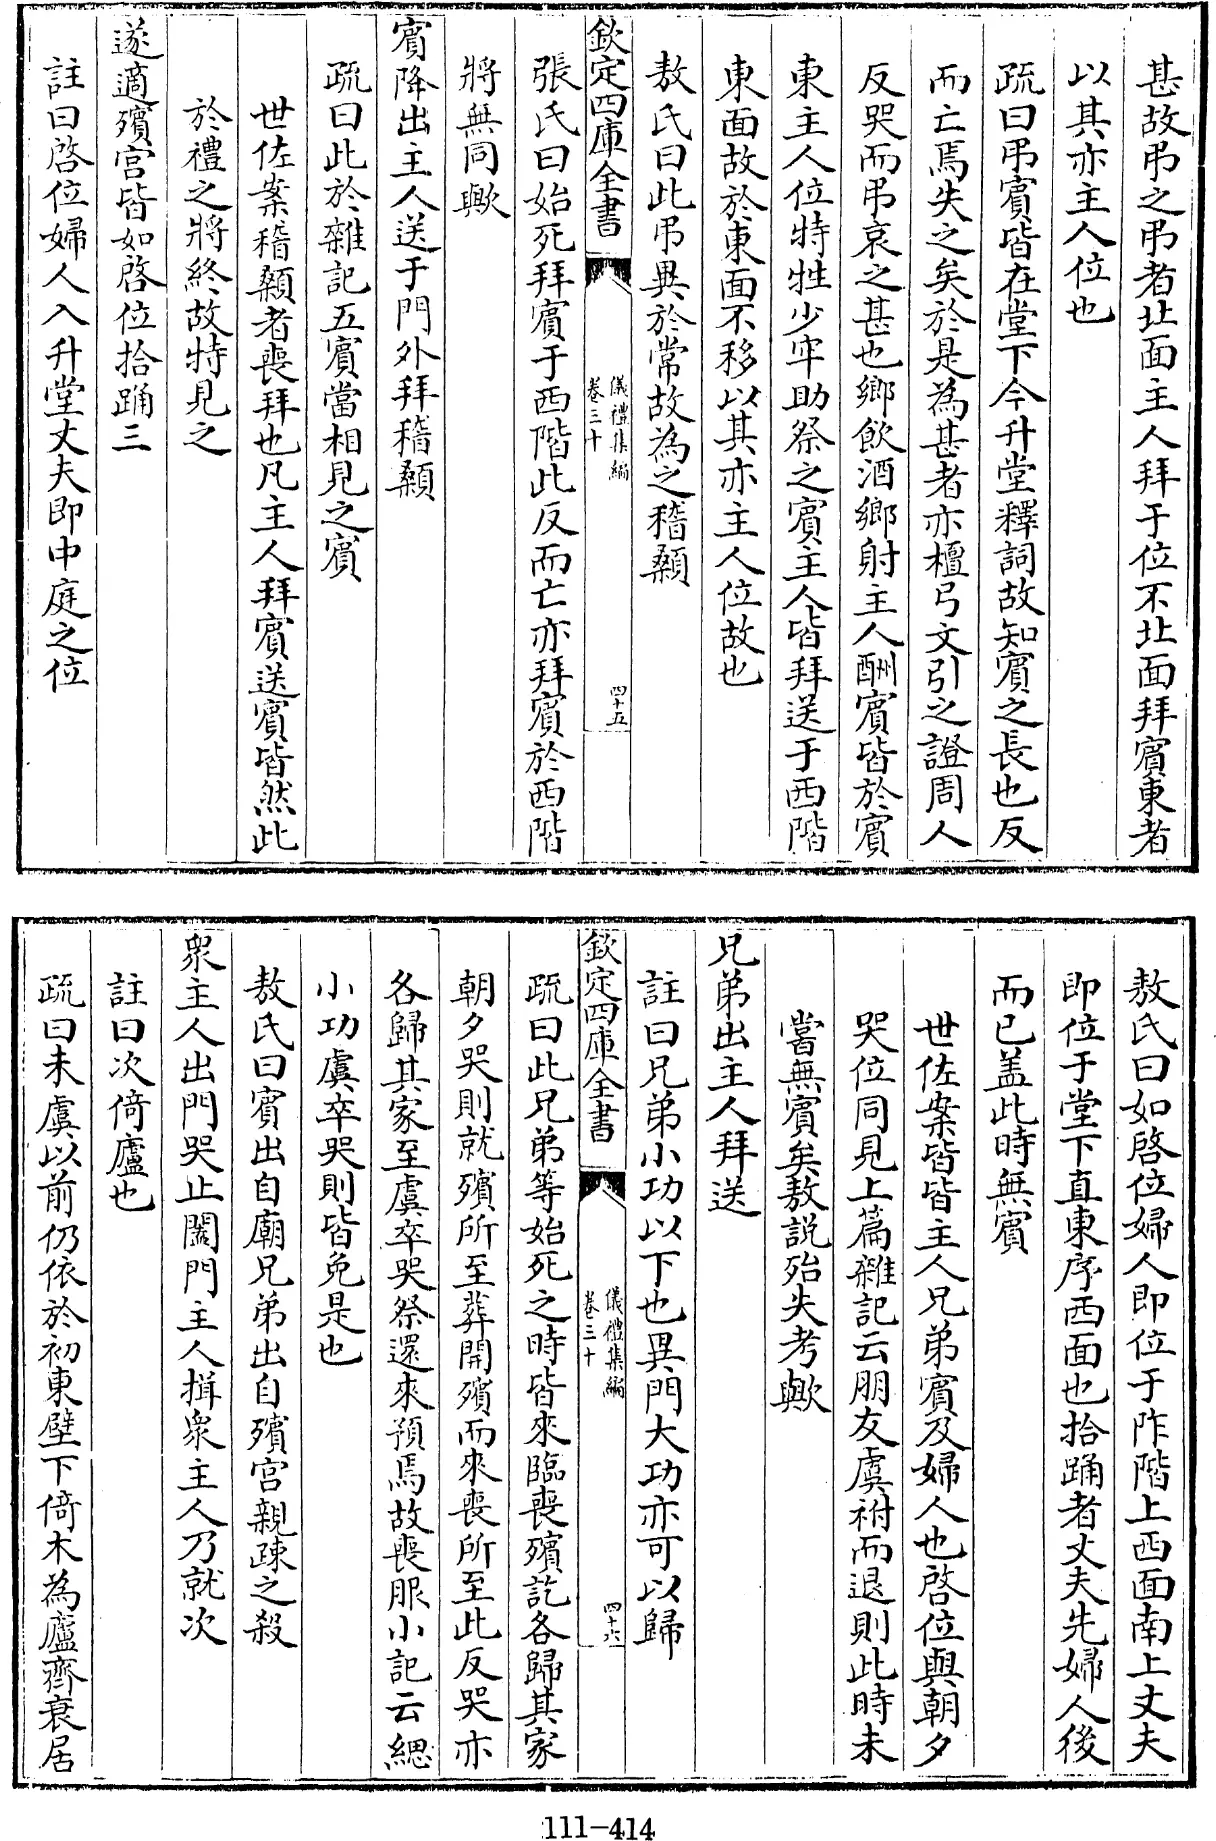 甚故弔之弔者北面主人拜于位不北面拜賓東者
以其亦主人位也
疏曰弔賓皆在堂下今升堂釋詞故知賓之長也反
而亡焉失之矣於是為甚者亦檀弓文引之證周人
反哭而弔哀之甚也鄉飲酒鄉射主人酬賓皆於賓
東主人位特牲少牢助祭之賓主人皆拜送于西階
東面故於東面不移以其亦主人位故也
敖氏曰此弔異於常故為之稽顙
欽定四庫全書
儀禮集編
卷三十
四十五
張氏曰始死拜賓于西階此反而亡亦拜賓於西階
將無同歟
賓降出主人送于門外拜稽顙
疏曰此於雜記五賓當相見之賓
世佐案稽顙者喪拜也凡主人拜賓送賓皆然此
於禮之將終故特見之
遂適殯宮皆如啓位拾踊三
註曰啓位婦人入升堂丈夫即中庭之位
敖氏曰如啓位婦人即位于阼階上西面南上丈夫
即位于堂下直東序西面也拾踊者丈夫先婦人後
而已盖此時無賓
世佐案皆皆主人兄弟賓及婦人也啓位與朝夕
哭位同見上篇雜記云朋友虞祔而退則此時未
嘗無賓矣敖説殆失考歟
兄弟出主人拜送
註曰兄弟小功以下也異門大功亦可以歸
欽定四庫全書
儀禮集編
卷三十
四十六
疏曰此兄弟等始死之時皆來臨喪殯訖各歸其家
朝夕哭則就殯所至葬開殯而來喪所至此反哭亦
各歸其家至虞卒哭祭還來預焉故喪服小記云緦
小功虞卒哭則皆免是也
敖氏曰賓出自廟兄弟出自殯宮親疎之殺
衆主人出門哭止闔門主人揖衆主人乃就次
註曰次倚廬也
疏曰未虞以前仍依於初東壁下倚木為廬齊衰居
111-414